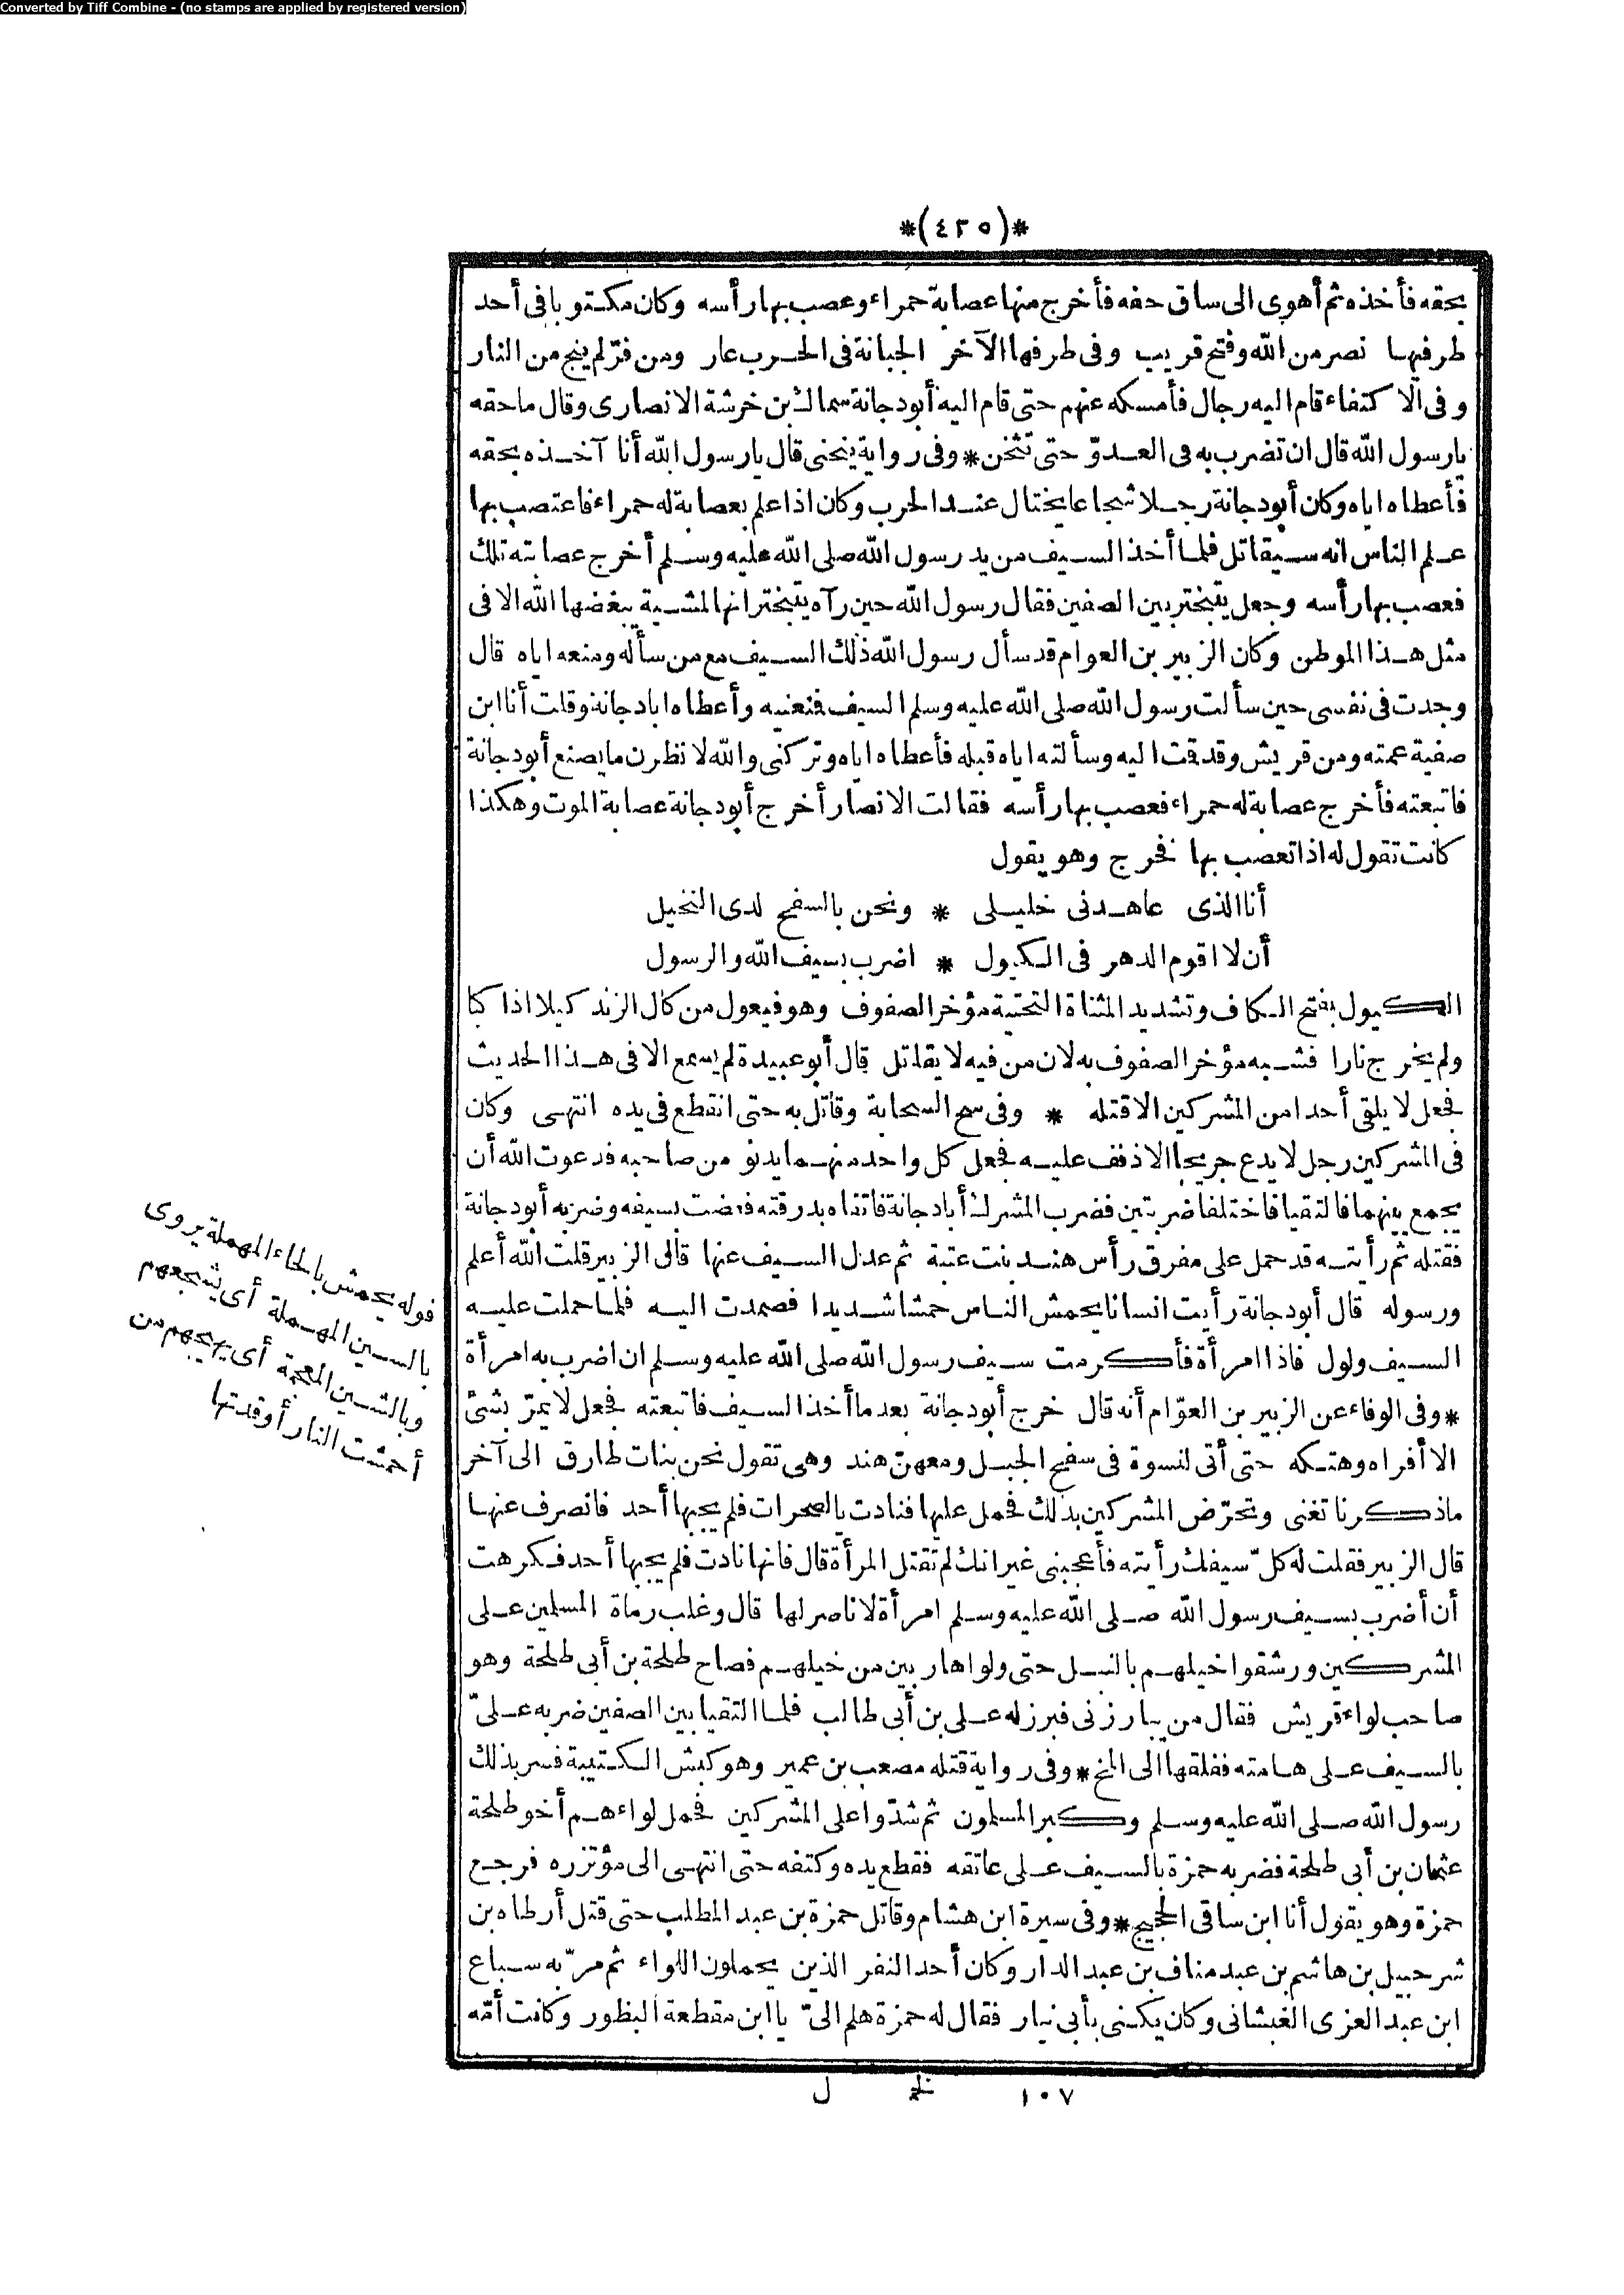 Converted by Tiff Combine - (no stamps are applied by registered version)
*(٤٢٥)*
بحقه فأخذه ثم أهوى الى ساق خفه فأخرج منها عصابة حمراء وعصب بها رأسه وكان مكتوبا فى أحد
طرفيها نصر من الله وفتح قريب وفى طرفها الآخر الجبانة فى الحرب عار ومن فرّ لم ينج من النار
وفى الاكتفاء قام اليه رجال فأمسكه عنهم حتى قام اليه أبو دجانة سماك بن خرشة الانصارى وقال ما حقه
يا رسول الله قال ان تضرب به فى العدوّ حتى تثخن * وفى رواية ينحنى قال يا رسول الله أنا آخذه بحقه
فأعطاه اياه وكان أبو دجانة رجلا شجاعا يختال عند الحرب وكان اذا علم بعصابة له حمراء فاعتصب بها
علم الناس انه سيقاتل فلما أخذ السيف من يد رسول الله صلى الله عليه وسلم أخرج عصابته تلك
فعصب بها رأسه وجعل يتبختر بين الصفين فقال رسول الله حين رآه يتبختر انها لمشية يبغضها الله الا فى
مثل هذا الموطن وكان الزبير بن العوام قد سأل رسول الله ذلك السيف مع من سأله ومنعه اياه قال
وجدت فى نفسى حين سألت رسول الله صلى الله عليه وسلم السيف فمنعنيه وأعطاه ابا دجانة وقلت أنا ابن
صفية عمته ومن قريش وقد قمت اليه وسألته اياه قبله فأعطاه اياه وتركنى والله لانظرن ما يصنع أبو دجانة
فاتبعته فأخرج عصابة له حمراء فعصب بها رأسه فقالت الانصار أخرج أبو دجانة عصابة الموت وهكذا
كانت تقول له اذا تعصب بها فخرج وهو يقول
أنا الذى عاهدنى خليلى * ونحن بالسفح لدى النخيل
أن لا اقوم الدهر فى الكيول * اضرب بسيف الله والرسول
الكيول بفتح الكاف وتشديد المثناة التحتية مؤخر الصفوف وهو فيعول من كال الزند كيلا اذا كبا
ولم يخرج نارا فشبه مؤخر الصفوف به لان من فيه لا يقاتل قال أبو عبيدة لم يسمع الا فى هذا الحديث
فجعل لا يلقى أحدا من المشركين الا قتله * وفى سح السحابة وقاتل به حتى انقطع فى يده انتهى وكان
فى المشركين رجل لا يدع جريحا الا ذفف عليه فجعل كل واحد منهما يدنو من صاحبه فدعوت الله أن
يجمع بينهما فالتقيا فاختلفا ضربتين فضرب المشرك أبا دجانة فاتقاه بدرقته فعضت بسيفه وضربه أبو دجانة
فقتله ثم رأيته قد حمل على مفرق رأس هند بنت عتبة ثم عدل السيف عنها قال الزبير قلت الله أعلم
ورسوله قال أبو دجانة رأيت انسانا يحمش الناس حمشا شديدا فصمدت اليه فلما حملت عليه
السيف ولول فاذا امرأة فأكرمت سيف رسول الله صلى الله عليه وسلم ان اضرب به امرأة
* وفى الوفاء عن الزبير بن العوّام أنه قال خرج أبو دجانة بعد ما أخذ السيف فاتبعته فجعل لا يمرّ بشئ
الا أفراه وهتكه حتى أتى لنسوة فى سفح الجبل ومعهنّ هند وهى تقول نحن بنات طارق الى آخر
ما ذكرنا تغنى وتحرّض المشركين بذلك فحمل عليها فنادت يا لصحرات فلم يجبها أحد فانصرف عنها
قال الزبير فقلت له كلّ سيفك رأيته فأعجبنى غير انك لم تقتل المرأة قال فانها نادت فلم يجبها أحد فكرهت
أن أضرب بسيف رسول الله صلى الله عليه وسلم امرأة لا ناصر لها قال وغلب رماة المسلمين على
المشركين ورشقوا خيلهم بالنبل حتى ولوا هاربين من خيلهم فصاح طلحة بن أبى طلحة وهو
صاحب لواء قريش فقال من يبارزنى فبرز له على بن أبى طالب فلما التقيا بين الصفين ضربه علىّ
بالسيف على هامته ففلقها الى المخ * وفى رواية قتله مصعب بن عمير وهو كبش الكتيبة فسر بذلك
رسول الله صلى الله عليه وسلم وكبر المسلمون ثم شدّوا على المشركين فحمل لواءهم أخو طلحة
عثمان بن أبى طلحة فضربه حمزة بالسيف على عاتقه فقطع يده وكتفه حتى انتهى الى مؤتزره فرجع
حمزة وهو يقول أنا ابن ساقى الحجيج * وفى سيرة ابن هشام وقاتل حمزة بن عبد المطلب حتى قتل أرطاه بن
شرحبيل بن هاشم بن عبد مناف بن عبد الدار وكان أحد النفر الذين يحملون اللواء ثم مرّ به سباع
ابن عبد العزى الغبشانى وكان يكنى بأبى نيار فقال له حمزة هلم الىّ يا ابن مقطعة البظور وكانت أمّه
قوله يحمش بالحاء المهملة يروى
بالسين المهملة أى يشجعهم
وبالشين المعجمة أى يهيجهم من
أحمشت النار أوقدتها
١٠٧ نخ ل